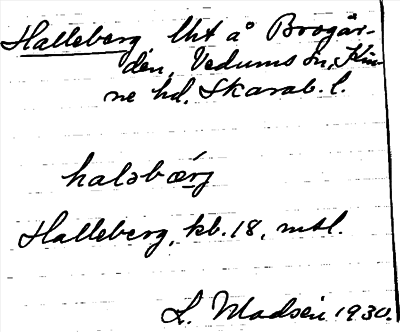 Halleberg Uht å Brogår-
den, Vedums sn, Kin-
ne hd, Skarab. l.
haləbærj
Halleberg, kb. 18, mtl.
L. Madsén 1930.